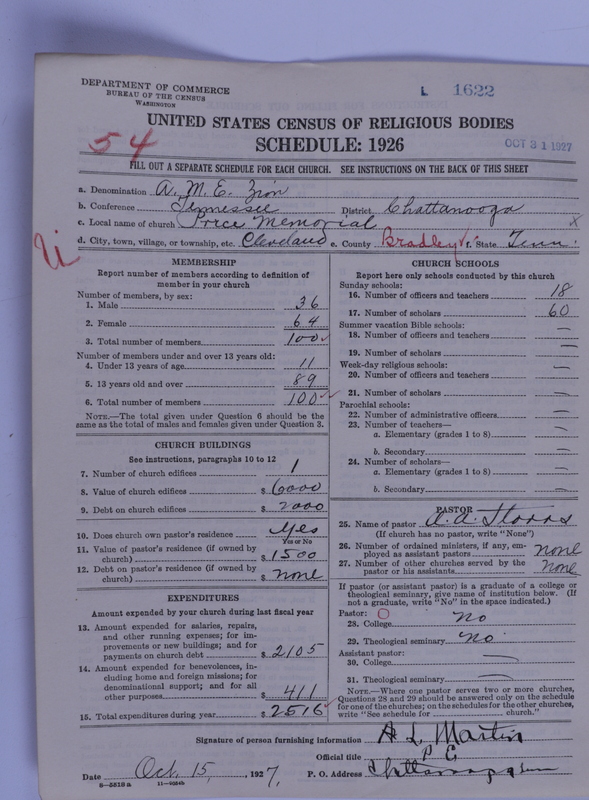 DEPARTMENT OF COMMERCE
BUREAU OF THE CENSUS
WASHINGTON
L 1622
UNITED STATES CENSUS OF RELIGIOUS BODIES
54
SCHEDULE: 1926
OCT 31 1927
FILL OUT A SEPARATE SCHEDULE FOR EACH CHURCH. SEE INSTRUCTIONS ON THE BACK OF THIS SHEET
a. Denomination A. M. E. Zion
b. Conference Tennessee District Chattanooga
c. Local name of church Price Memorial x
d. City, town, village, or township, etc. Cleveland e. County Bradley f. State Tenn.
MEMBERSHIP
Report number of members according to definition of
member in your church
Number of members, by sex:
1. Male 36
2. Female 64
3. Total number of members 100
Number of members under and over 13 years old:
4. Under 13 years of age 11
5. 13 years old and over 89
6. Total number of members 100
NOTE.—The total given under Question 6 should be the
same as the total of males and females given under Question 3.
CHURCH BUILDINGS
See instructions, paragraphs 10 to 12
7. Number of church edifices 1
8. Value of church edifices $ 6000
9. Debt on church edifices $ 2000
10. Does church own pastor's residence Yes
Yes or No
11. Value of pastor's residence (if owned by
church) $ 1500
12. Debt on pastor's residence (if owned by
church) $ none
EXPENDITURES
Amount expended by your church during last fiscal year
13. Amount expended for salaries, repairs,
and other running expenses; for im-
provements or new buildings; and for
payments on church debt $ 2105
14. Amount expended for benevolences, in-
cluding home and foreign missions; for
denominational support; and for all
other purposes $ 411
15. Total expenditures during year $ 2516
CHURCH SCHOOLS
Report here only schools conducted by this church
Sunday schools:
16. Number of officers and teachers 18
17. Number of scholars 60
Summer vacation Bible schools:
18. Number of officers and teachers —
19. Number of scholars —
Week-day religious schools:
20. Number of officers and teachers —
21. Number of scholars —
Parochial schools:
22. Number of administrative officers —
23. Number of teachers—
a. Elementary (grades 1 to 8) —
b. Secondary —
24. Number of scholars—
a. Elementary (grades 1 to 8) —
b. Secondary —
PASTOR
25. Name of pastor
(If church has no pastor, write "None")
26. Number of ordained ministers, if any, em-
ployed as assistant pastors none
27. Number of other churches served by the
pastor or his assistants none
If pastor (or assistant pastor) is a graduate of a college or
theological seminary, give name of institution below. (If
not a graduate, write "No" in the space indicated.)
Pastor:
28. College No
29. Theological seminary No
Assistant pastor:
30. College —
31. Theological seminary —
NOTE.—Where one pastor serves two or more churches,
Questions 28 and 29 should be answered only on the schedule
for one of the churches; on the schedules for the other churches,
write "See schedule for church."
Signature of person furnishing information A L Martin
Official title P E
Date Oct. 15, 1927, P. O. Address Chattanooga Tenn